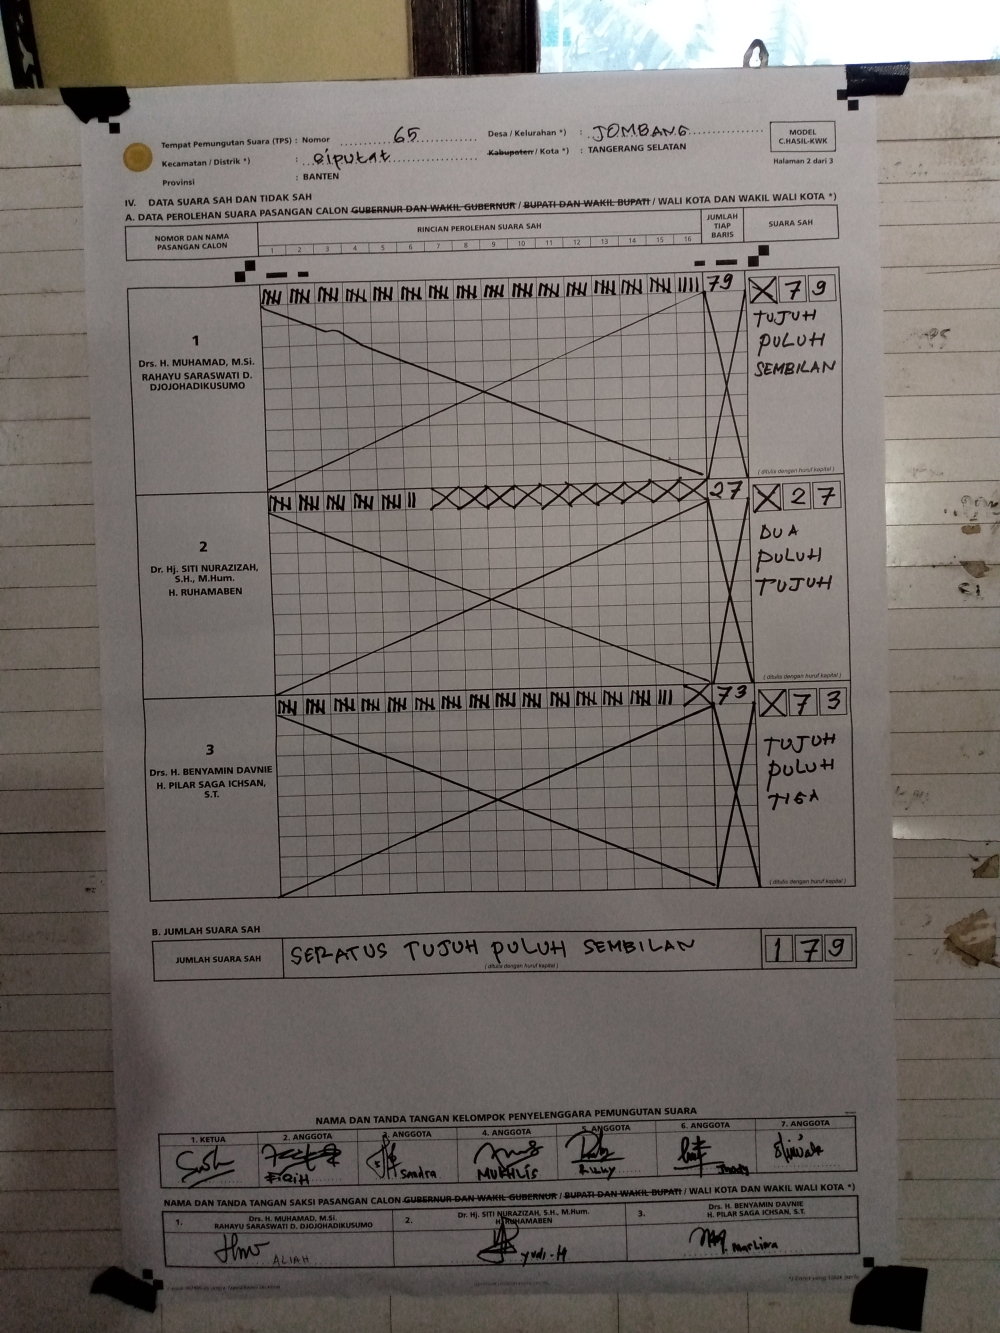 Tempat Pemungutan Suara (TPS) : Nomor 65 Desa / Kelurahan *) : JOMBANG
Kecamatan / Distrik *) : Ciputat Kabupaten / Kota *) : TANGERANG SELATAN
Provinsi : BANTEN
MODEL
C.HASIL-KWK
Halaman 2 dari 3
IV. DATA SUARA SAH DAN TIDAK SAH
A. DATA PEROLEHAN SUARA PASANGAN CALON GUBERNUR DAN WAKIL GUBERNUR / BUPATI DAN WAKIL BUPATI / WALI KOTA DAN WAKIL WALI KOTA *)
NOMOR DAN NAMA
PASANGAN CALON
RINCIAN PEROLEHAN SUARA SAH
1 2 3 4 5 6 7 8 9 10 11 12 13 14 15 16
JUMLAH
TIAP
BARIS
SUARA SAH
1
Drs. H. MUHAMAD, M.Si.
RAHAYU SARASWATI D.
DJOJOHADIKUSUMO
79
X 7 9
TUJUH
PULUH
SEMBILAN
( ditulis dengan huruf kapital )
2
Dr. Hj. SITI NURAZIZAH,
S.H., M.Hum.
H. RUHAMABEN
27
X 2 7
DUA
PULUH
TUJUH
( ditulis dengan huruf kapital )
3
Drs. H. BENYAMIN DAVNIE
H. PILAR SAGA ICHSAN,
S.T.
73
X 7 3
TUJUH
PULUH
TIGA
( ditulis dengan huruf kapital )
B. JUMLAH SUARA SAH
JUMLAH SUARA SAH
SERATUS TUJUH PULUH SEMBILAN
( ditulis dengan huruf kapital )
1 7 9
NAMA DAN TANDA TANGAN KELOMPOK PENYELENGGARA PEMUNGUTAN SUARA
1. KETUA 2. ANGGOTA 3. ANGGOTA 4. ANGGOTA 5. ANGGOTA 6. ANGGOTA 7. ANGGOTA
FIQIH Sandra MUKHLIS Rizky
NAMA DAN TANDA TANGAN SAKSI PASANGAN CALON GUBERNUR DAN WAKIL GUBERNUR / BUPATI DAN WAKIL BUPATI / WALI KOTA DAN WAKIL WALI KOTA *)
1. Drs. H. MUHAMAD, M.Si.
RAHAYU SARASWATI D. DJOJOHADIKUSUMO
2. Dr. Hj. SITI NURAZIZAH, S.H., M.Hum.
H. RUHAMABEN
3. Drs. H. BENYAMIN DAVNIE
H. PILAR SAGA ICHSAN, S.T.
ALIAH yudi-H Marlina